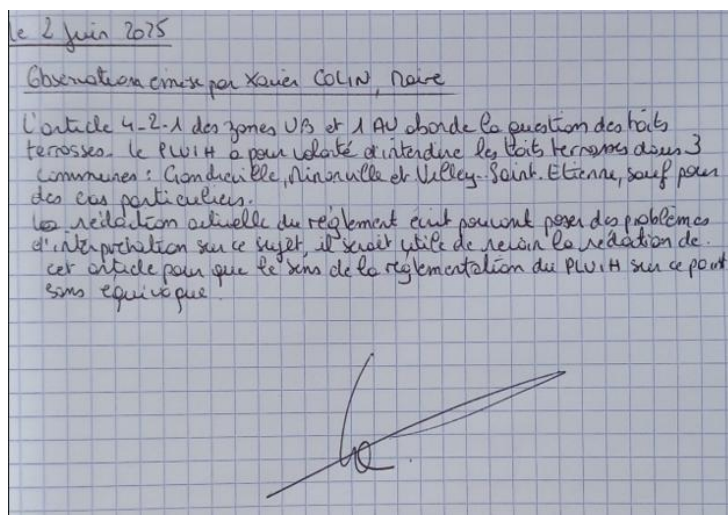 le 2 Juin 2025
Observation émise par Xavier COLIN, Maire
L'article 4-2-1 des zones UB et 1 AU aborde la question des toits
terrasses. Le PLUiH a pour volonté d'interdire les toits terrasses dans 3
communes : Gondreville, Minorville et Villey-Saint-Etienne, sauf pour
des cas particuliers.
La rédaction actuelle du règlement écrit pouvant poser des problèmes
d'interprétation sur ce sujet, il serait utile de revoir la rédaction de
cet article pour que le sens de la réglementation du PLUiH sur ce point
sans équivoque.